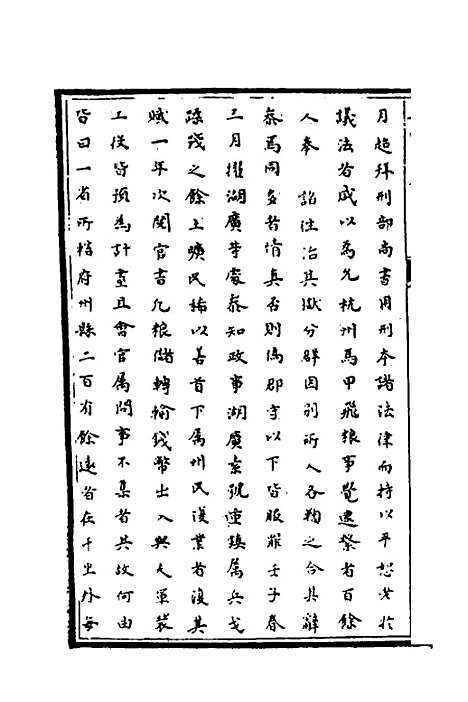 月超拜刑部尚書用刑本諸法律而持以平恕老於
議法者咸以為允杭州馬甲飛粮事覺逮繫者百餘
人奉　詔往治其獄分辟因別所人各鞫之合其辭
叅焉同多者情真否則偽郡守以下皆服罪壬子春
三月擢湖廣等處叅知政事湖廣素號連鎮属兵戈
蹂踐之餘土曠民稀以善首下属州民復業者復其
賦一年次閱官書凡粮儲轉輸錢幣出入與夫軍裝
工役皆預為計畫且會官属問事不集者其故何由
皆曰一省所轄府州縣二百有餘遠者在千里外每